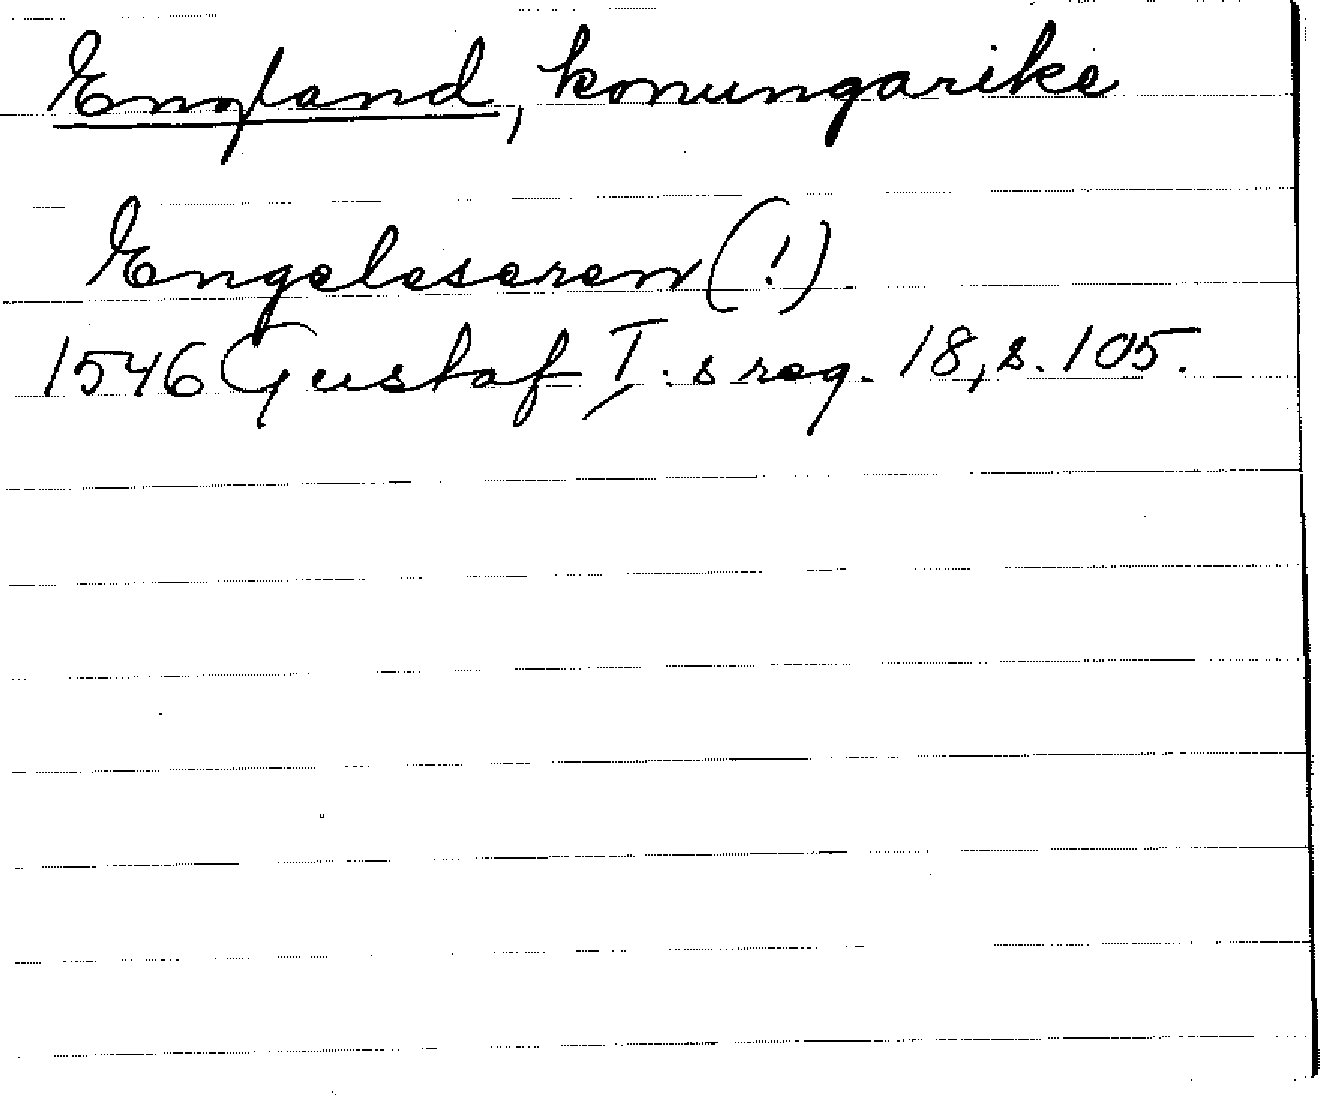 England, konungarike
Engeleseren (!)
1546 Gustaf I:s reg. 18, s. 105.